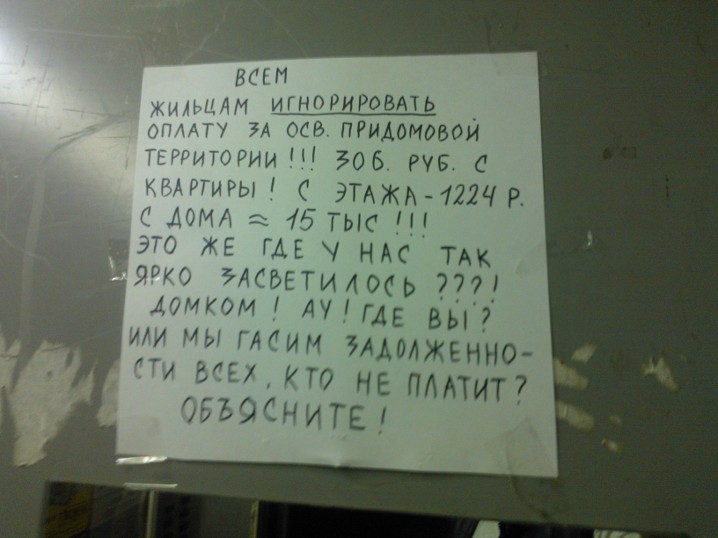 ВСЕМ
ЖИЛЬЦАМ ИГНОРИРОВАТЬ
ОПЛАТУ ЗА ОСВ. ПРИДОМОВОЙ
ТЕРРИТОРИИ!!! 306. РУБ. С
КВАРТИРЫ! С ЭТАЖА - 1224 Р.
С ДОМА ≈ 15 ТЫС!!!
ЭТО ЖЕ ГДЕ У НАС ТАК
ЯРКО ЗАСВЕТИЛОСЬ ???!
ДОМКОМ! АУ! ГДЕ ВЫ?
ИЛИ МЫ ГАСИМ ЗАДОЛЖЕННО-
СТИ ВСЕХ, КТО НЕ ПЛАТИТ?
ОБЪЯСНИТЕ!